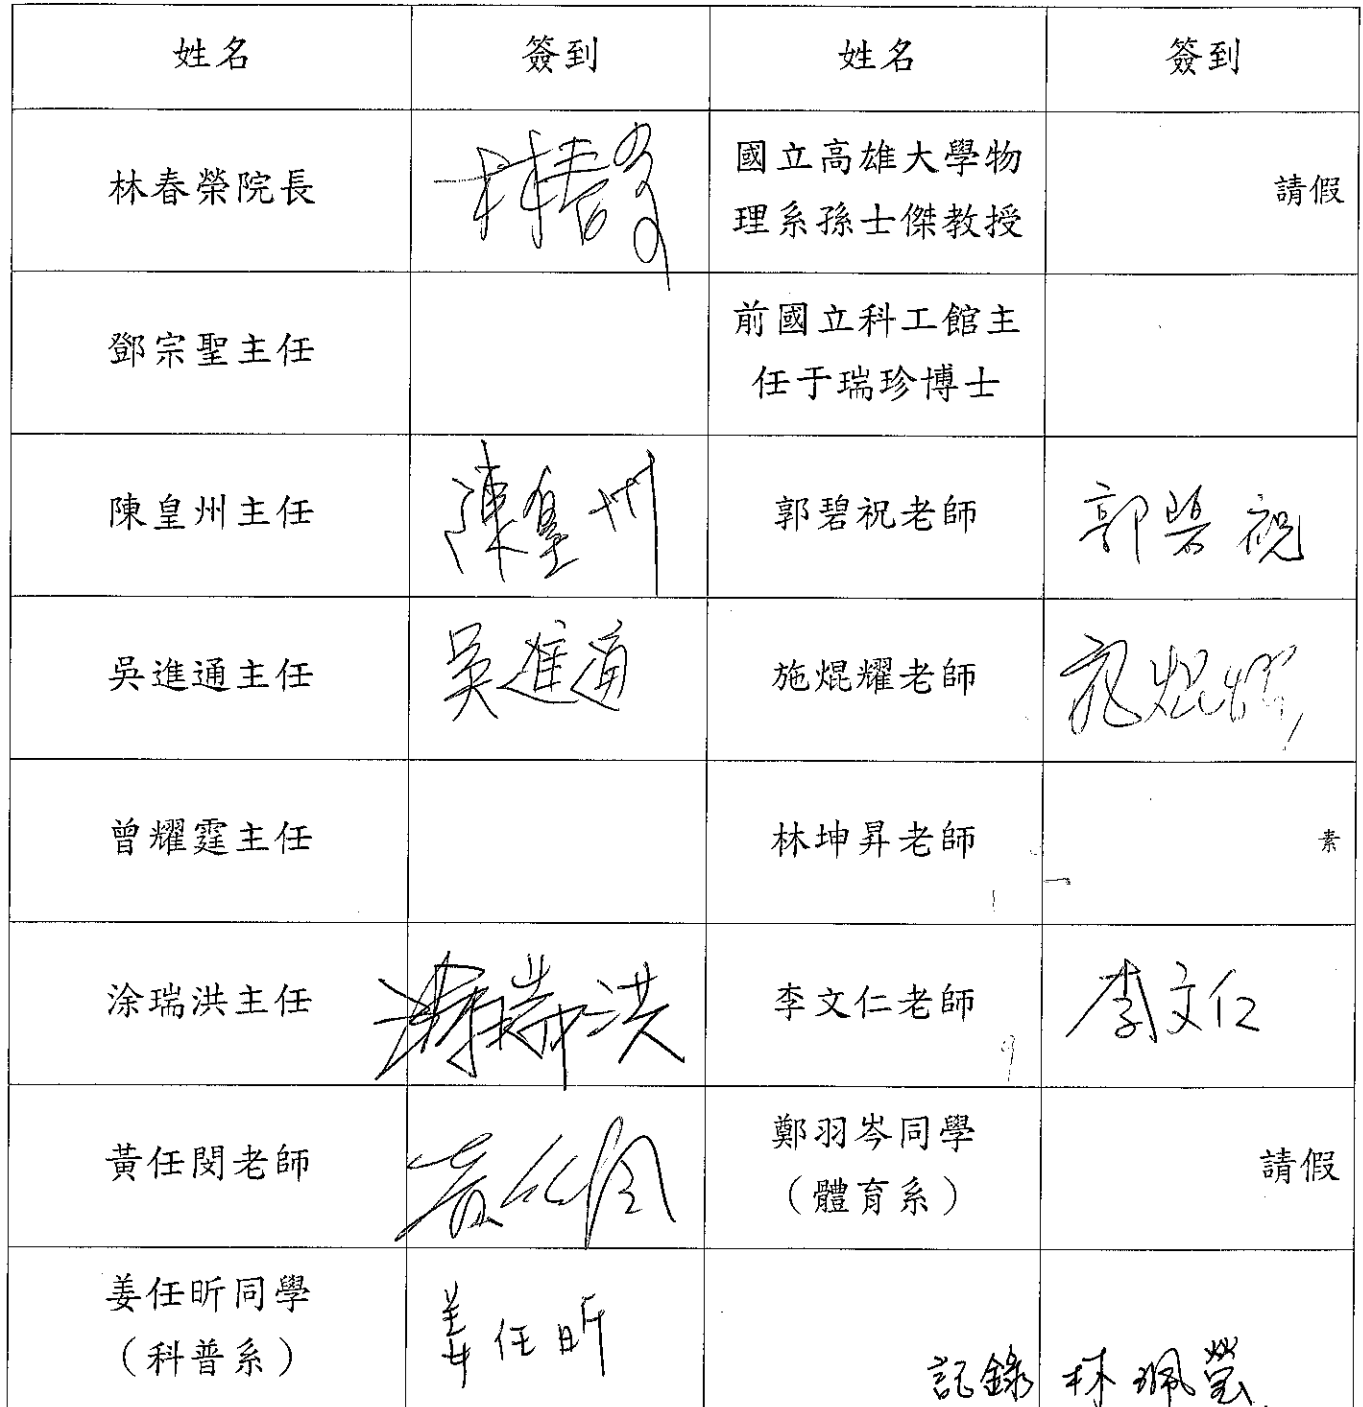 姓名 簽到 姓名 簽到
林春榮院長 林春榮 國立高雄大學物
理系孫士傑教授 請假
鄧宗聖主任 前國立科工館主
任于瑞珍博士
陳皇州主任 陳皇州 郭碧祝老師 郭碧祝
吳進通主任 吳進通 施焜耀老師 施焜耀
曾耀霆主任 林坤昇老師 素
涂瑞洪主任 涂瑞洪 李文仁老師 李文仁
黃任閔老師 黃任閔 鄭羽岑同學
（體育系） 請假
姜任昕同學 姜任昕
（科普系） 記錄 林珮瑩